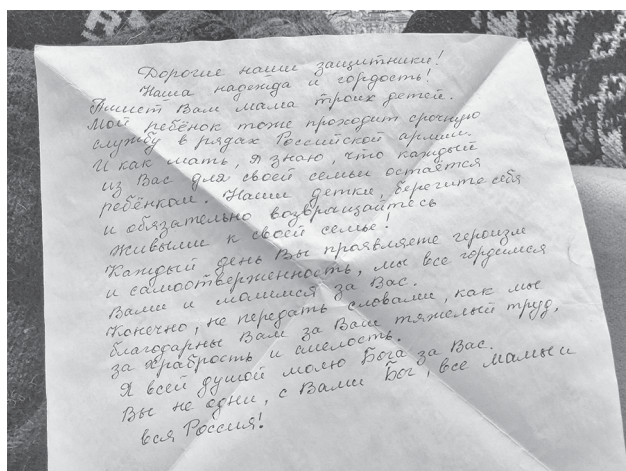 Дорогие наши защитники!
Наша надежда и гордость!
Пишет Вам мама троих детей.
Мой ребёнок тоже проходит срочную
службу в рядах Российской армии.
И как мать, я знаю, что каждый
из Вас для своей семьи остаётся
ребёнком. Наши детки, берегите себя
и обязательно возвращайтесь
живыми к своей семье!
Каждый день Вы проявляете героизм
и самоотверженность, мы все гордимся
Вами и молимся за Вас.
Конечно, не передать словами, как мы
благодарны Вам за Ваш тяжелый труд,
за храбрость и смелость.
Я всей душой молю Бога за Вас.
Вы не одни, с Вами Бог, все мамы и
вся Россия!